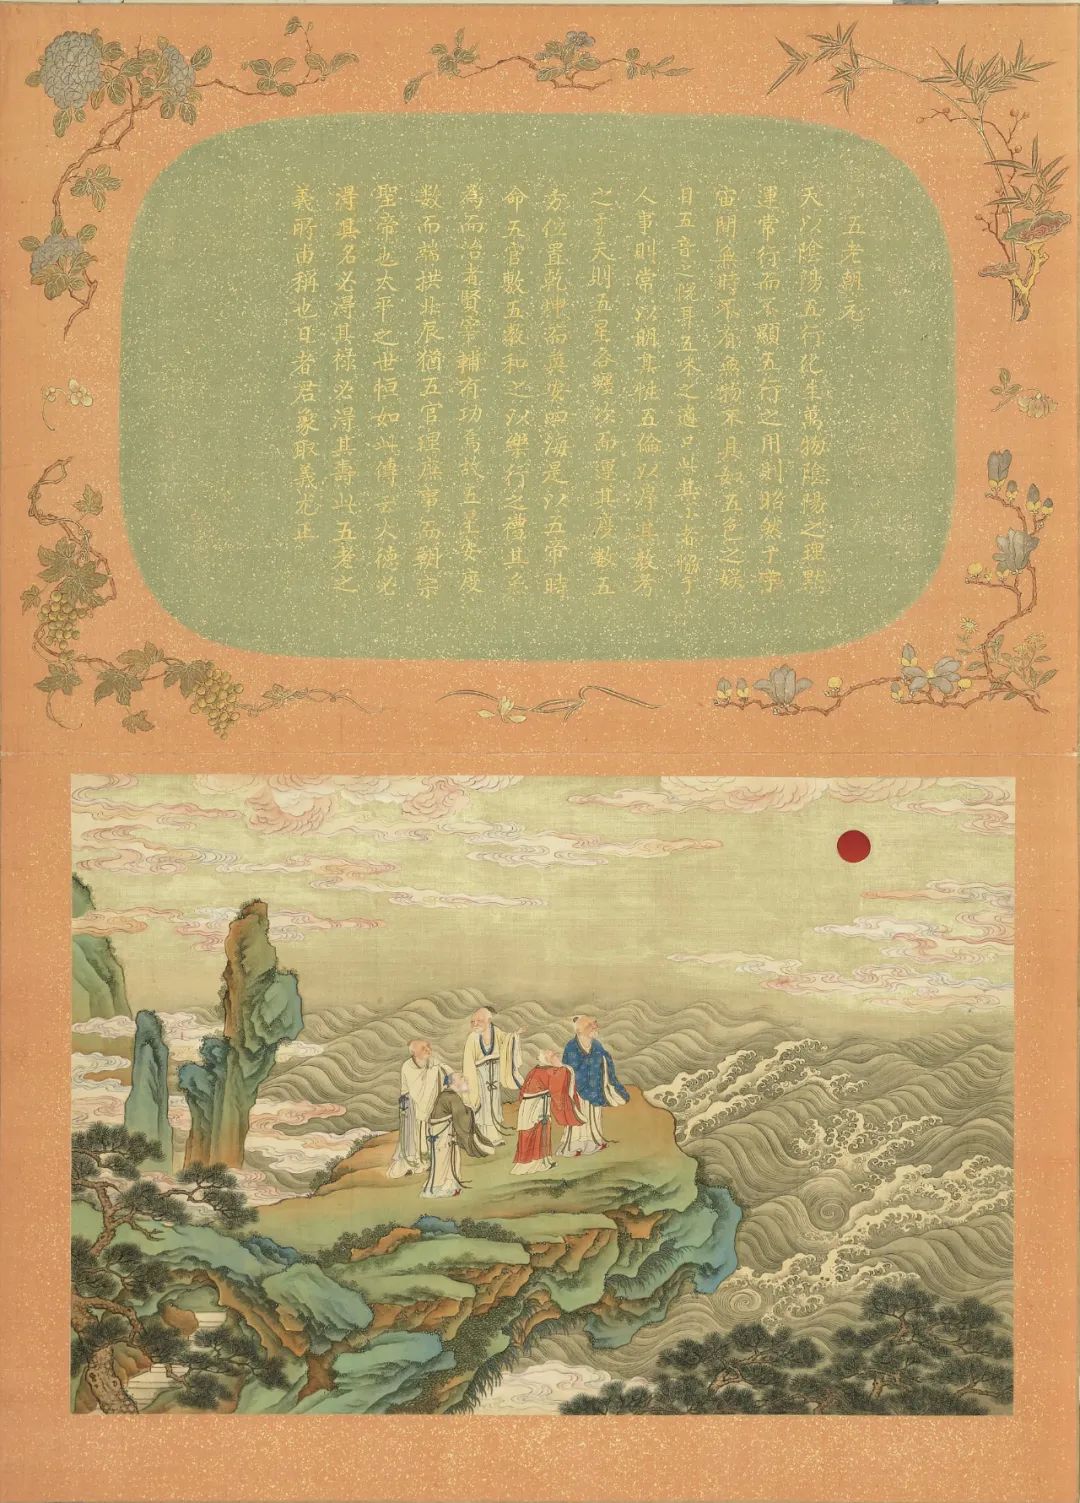 五老朝元
天以陰陽五行化生萬物陰陽之理默
運常行而不顯五行之用則昭然于宇
宙間無時不有無物不具如五色之娛
目五音之悅耳五味之適口此其小者協于
人事則常以明其性五倫以厚其教考
之于天則五星各纏次而運其度數五
方位置乾坤而奠安四海是以五帝時
命五官敷五教和之以樂行之禮其無
為而治者賢宰輔有功焉故五星安度
数而端拱北辰猶五官理庶事而朝宗
聖帝也太平之世恒如此傳云大德必
得其名必得其祿必得其壽此五老之
義所由稱也日者君象取義尤正